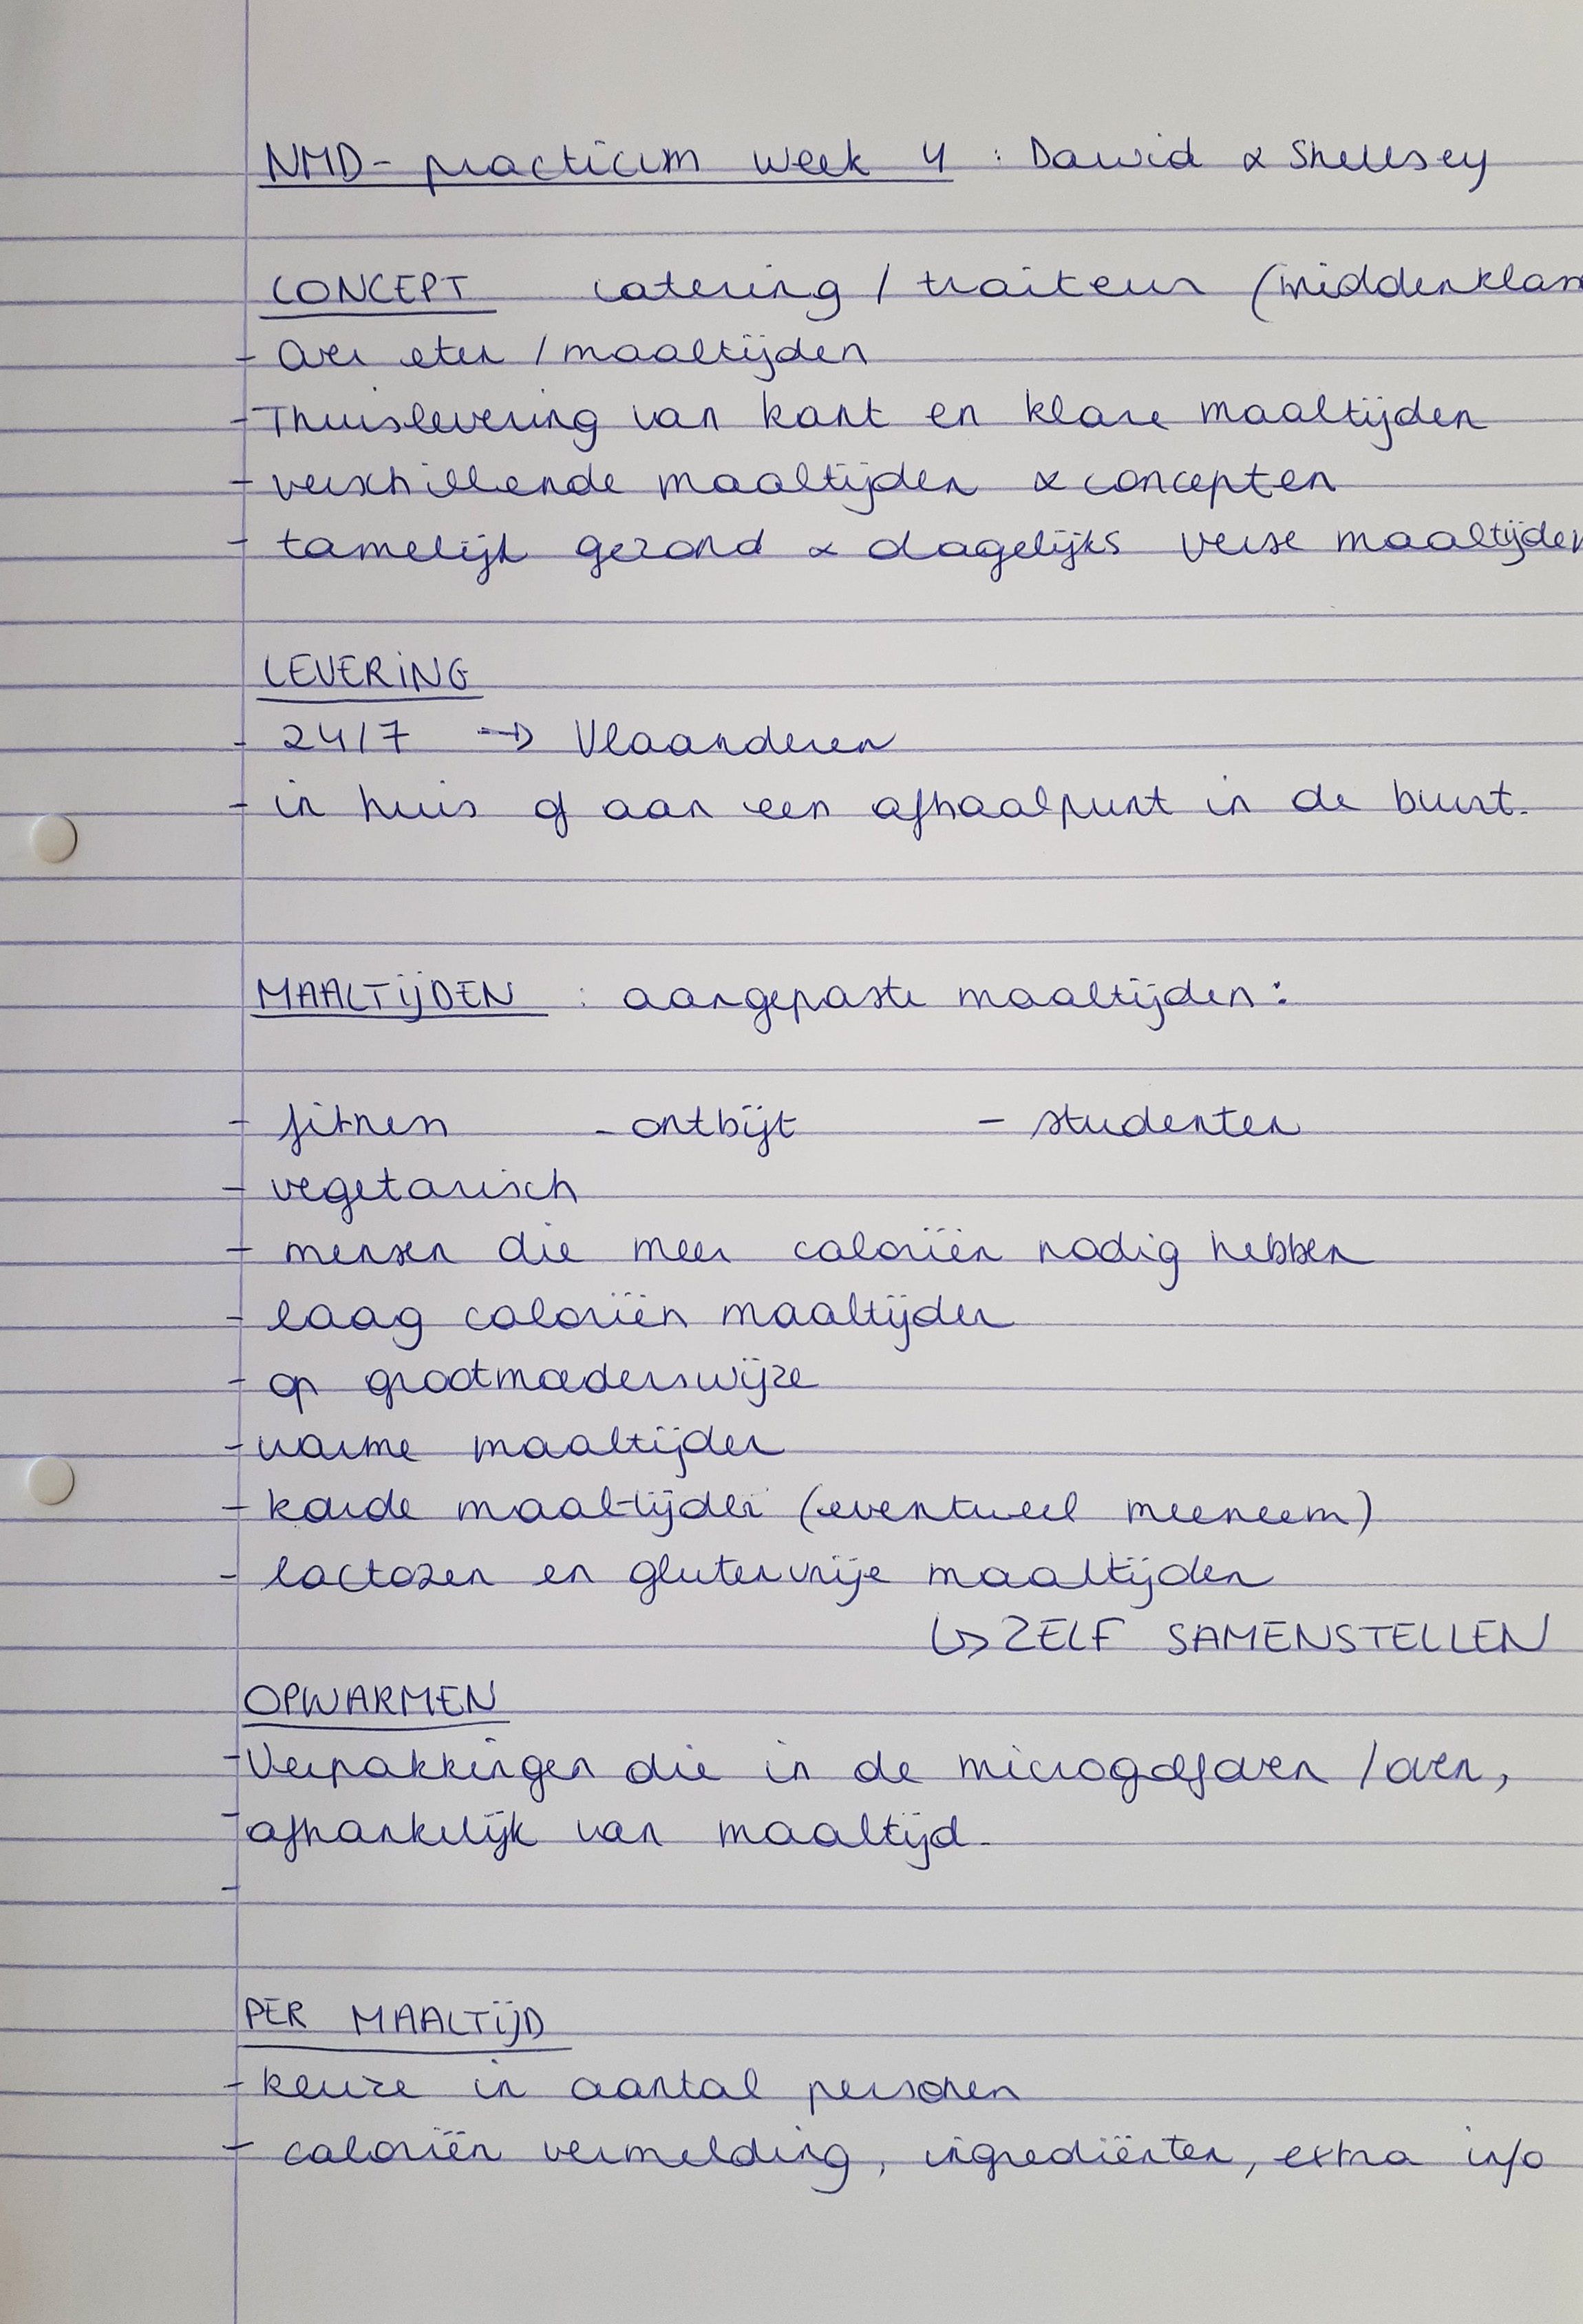 NMD- practicum week 4 : Dawid & Shellsey
CONCEPT catering / traiteur (middenklass
- Over eten / maaltijden
- Thuislevering van kant en klare maaltijden
- verschillende maaltijden & concepten
- tamelijk gezond & dagelijks verse maaltijden
LEVERING
- 24/7 → Vlaanderen
- in huis of aan een afhaalpunt in de buurt.
MAALTIJDEN : aangepaste maaltijden:
- fitness - ontbijt - studenten
- vegetarisch
- mensen die meer caloriën nodig hebben
- laag caloriën maaltijden
- op grootmoederswijze
- warme maaltijden
- koude maaltijden (eventueel meeneem)
- lactozen en glutenvrije maaltijden
↳ ZELF SAMENSTELLEN
OPWARMEN
- Verpakkingen die in de microgolfoven / oven,
- afhankelijk van maaltijd.
-
PER MAALTIJD
- keuze in aantal personen
- caloriën vermelding, ingrediënten, extra info